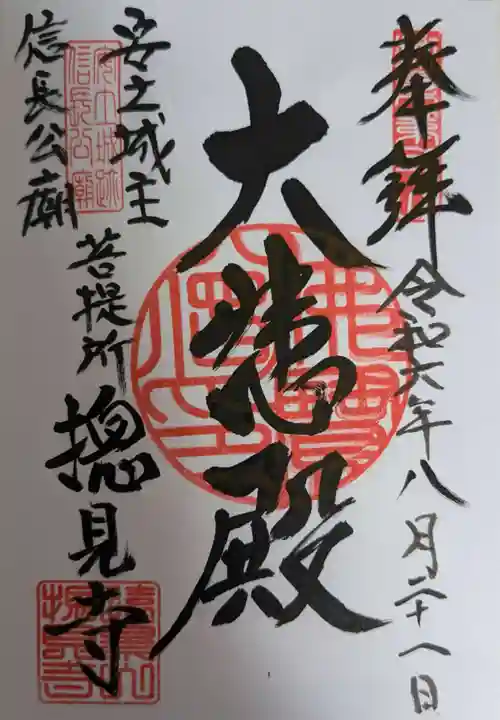 奉拝
令和六年八月二十八日
大悲殿
安土城主
信長公廟
菩提所
摠見寺
安土城跡
信長公廟